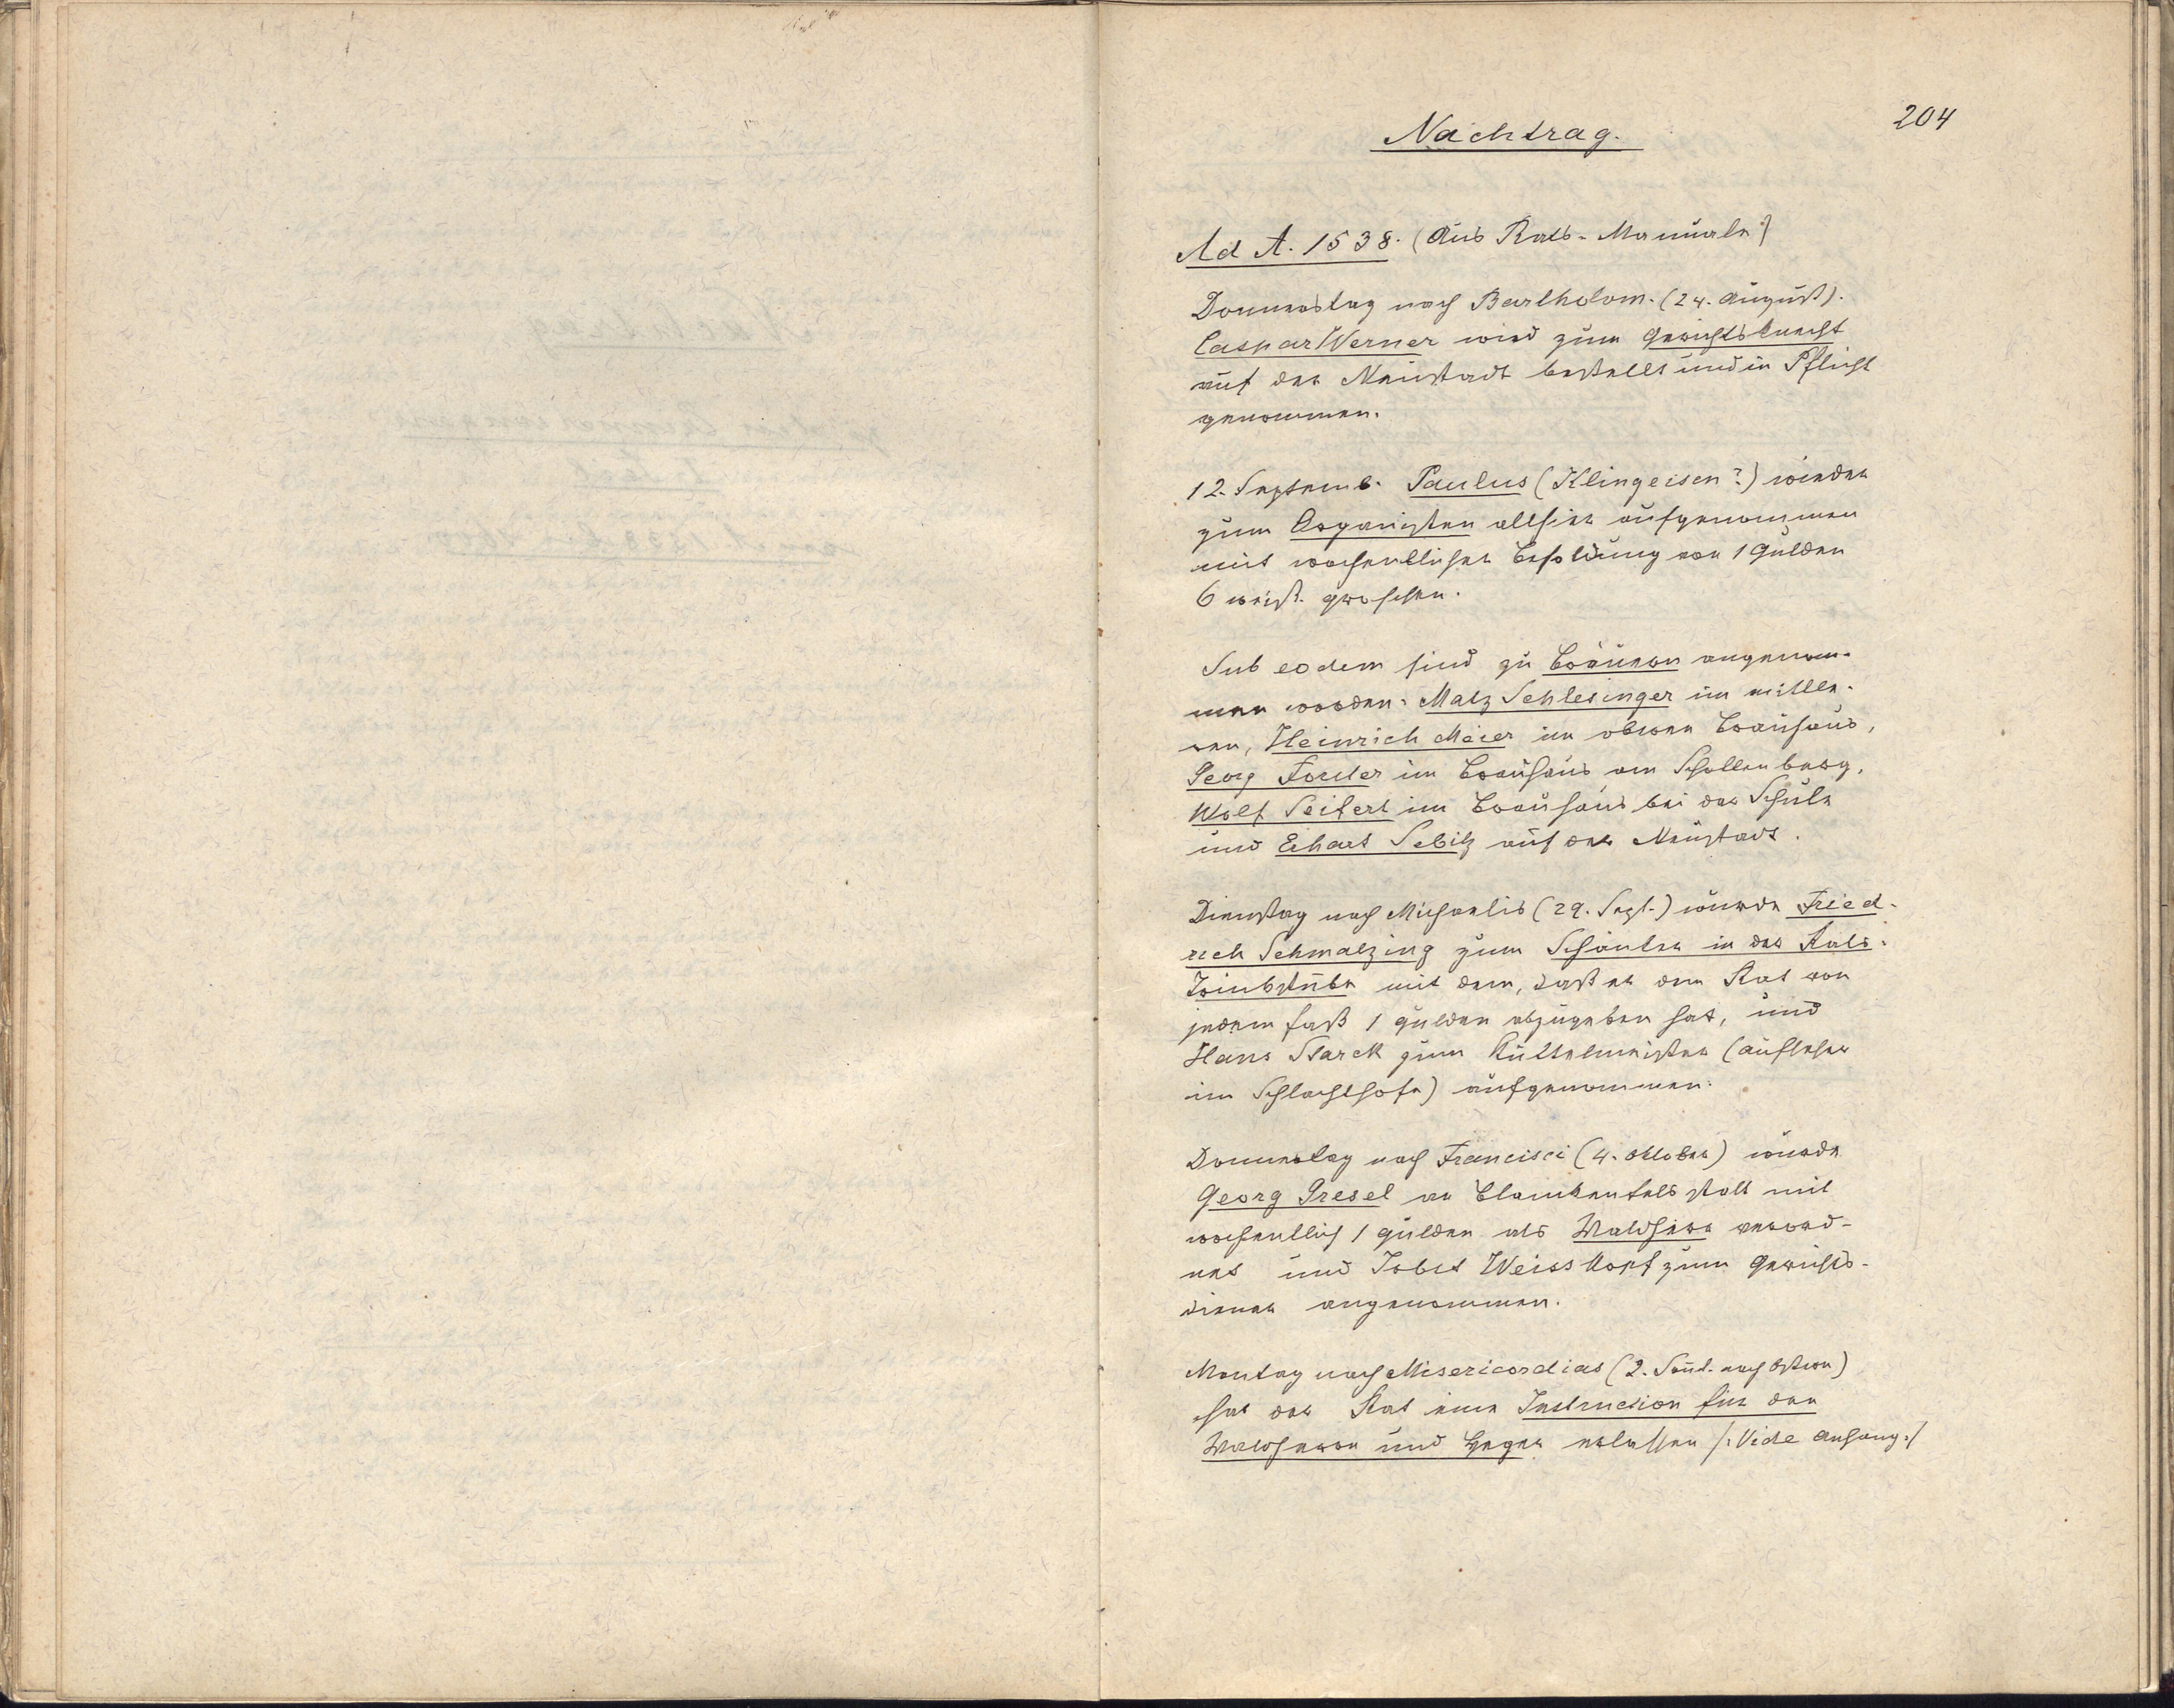 204
Nachtrag.
Ad A. 1538. (Aus Rats-Manuale)
Donnerstag nach Bartholom. (24. August).
Caspar Werner wird zum Gerichtsknecht
auf der Neustadt bestellt und in Pflicht
genommen.
12. Septemb. Paulus (Klingeisen?) wieder
zum Organisten allhier aufgenommen
mit wochentlicher Besoldung von 1 Gulden
6 weiß. groschen.
Sub eodem sind zu Bräuern angenom-
men worden: Matz Schlesinger im mittle-
ren, Heinrich Meier im obern Brauhaus,
Georg Forster im Brauhaus am Schollenberg,
Wolf Seifert im Brauhaus bei der Schule
und Erhart Sebitz auf der Neustadt.
Dienstag nach Michaelis (29. Sept.) wurde Fried-
rich Schmalzing zum Schänken in der Rats-
Trinkstube mit dem, daß er dem Rat von
jedem faß 1 gulden abzugeben hat, und
Hans Starck zum Küttelmeister (aufseher
im Schlachthofe) aufgenommen.
Donnerstag nach Francisci (4. Oktober) wurde
Georg Gresel an Blankenfels statt mit
wochentlich 1 gulden als Waldherr verord-
net und Jobst Weisskopf zum Gerichts-
diener angenommen.
Montag nach Misericordias (2. Sont. nach Ostern)
hat der Rat eine Instruction für den
Waldherrn und Heger erlassen /: Vide Anhang :/